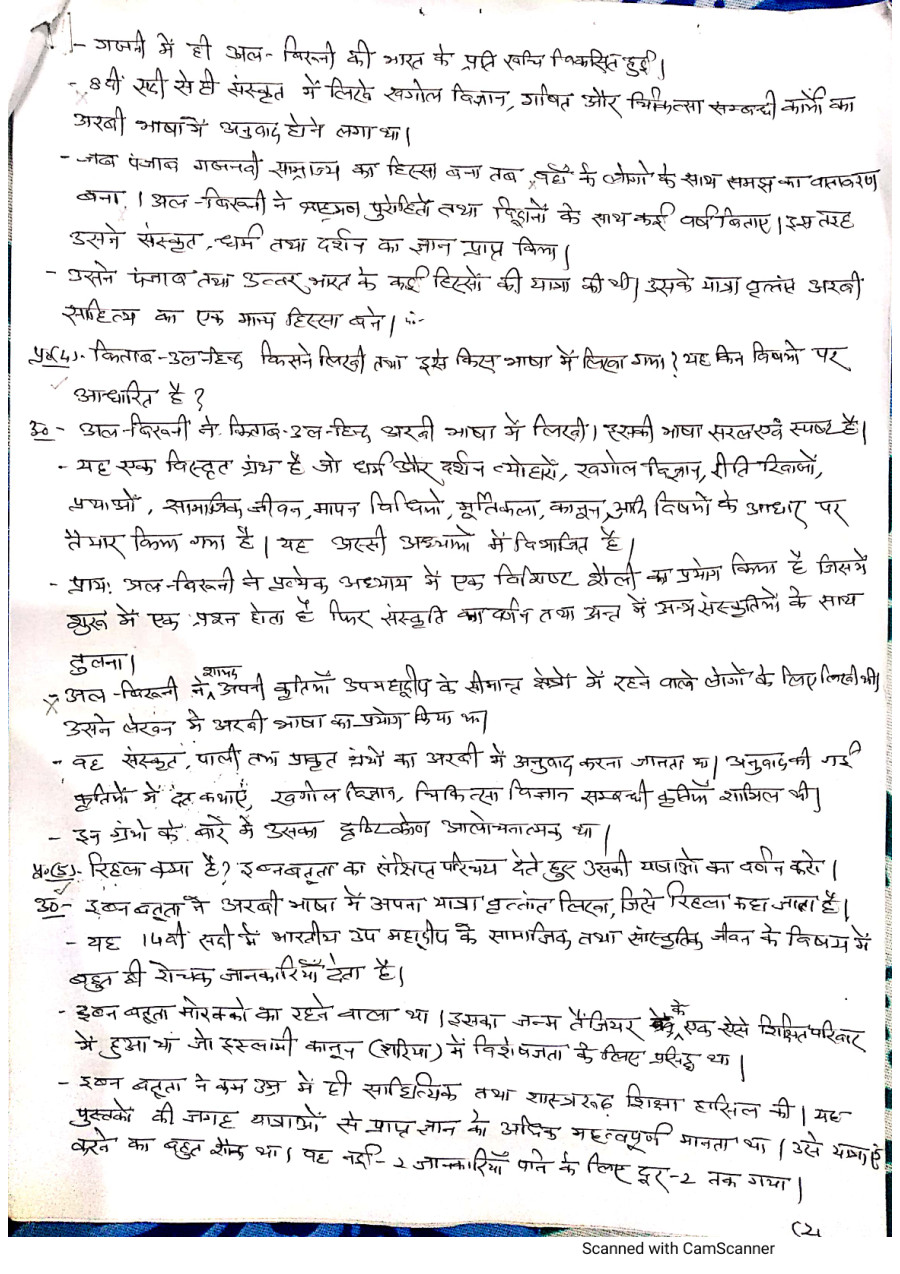 - गजनी में ही अल-बिरूनी की भारत के प्रति रूचि विकसित हुई।
- 8वीं सदी से ही संस्कृत में लिखे खगोल विज्ञान, गणित और चिकित्सा सम्बन्धी कार्यों का
अरबी भाषा में अनुवाद होने लगा था।
- जब पंजाब गजनवी साम्राज्य का हिस्सा बना तब वहाँ के लोगों के साथ समझ का वातावरण
बना। अल-बिरूनी ने ब्राह्मण पुरोहितों तथा विद्वानों के साथ कई वर्ष बिताए। इस तरह
उसने संस्कृत, धर्म तथा दर्शन का ज्ञान प्राप्त किया।
- उसने पंजाब तथा उत्तर भारत के कई हिस्सों की यात्रा की थी। उसके यात्रा वृतांत अरबी
साहित्य का एक मान्य हिस्सा बने।
प्र०(4)- किताब-उल-हिन्द किसने लिखी तथा इसे किस भाषा में लिखा गया? यह किन विषयों पर
आधारित है?
उ०- अल-बिरूनी ने किताब-उल-हिन्द अरबी भाषा में लिखी। इसकी भाषा सरल एवं स्पष्ट है।
- यह एक विस्तृत ग्रंथ है जो धर्म और दर्शन त्योहारों, खगोल विज्ञान, रीति रिवाजों,
प्रथाओं, सामाजिक जीवन, मापन विधियों, मूर्तिकला, कानून, आदि विषयों के आधार पर
तैयार किया गया है। यह अस्सी अध्यायों में विभाजित है।
- प्राय: अल-बिरूनी ने प्रत्येक अध्याय में एक विशिष्ट शैली का प्रयोग किया है जिसमें
शुरू में एक प्रश्न होता है फिर संस्कृति का वर्णन तथा अन्त में अन्य संस्कृतियों के साथ
तुलना।
- अल-बिरूनी ने शायद अपनी कृतियाँ उपमहाद्वीप के सीमान्त क्षेत्रों में रहने वाले लोगों के लिए लिखी थी।
उसने लेखन में अरबी भाषा का प्रयोग किया था।
- वह संस्कृत, पाली तथा प्राकृत ग्रंथों का अरबी में अनुवाद करना जानता था। अनुवाद की गई
कृतियों में दंत कथाएं, खगोल विज्ञान, चिकित्सा विज्ञान सम्बन्धी कृतियाँ शामिल थी।
- इन ग्रंथों के बारे में उसका दृष्टिकोण आलोचनात्मक था।
प्र०(5)- रिहला क्या है? इब्नबतूता का संक्षिप्त परिचय देते हुए उसकी यात्राओं का वर्णन करो।
उ०- इब्न बतूता ने अरबी भाषा में अपना यात्रा वृत्तांत लिखा, जिसे रिहला कहा जाता है।
- यह 14वीं सदी में भारतीय उप महाद्वीप के सामाजिक तथा सांस्कृतिक जीवन के विषय में
बहुत ही रोचक जानकारियाँ देता है।
- इब्न बतूता मोरक्को का रहने वाला था। इसका जन्म तैंजियर के एक ऐसे शिक्षित परिवार
में हुआ था जो इस्लामी कानून (शरिया) में विशेषज्ञता के लिए प्रसिद्ध था।
- इब्न बतूता ने कम उम्र में ही साहित्यिक तथा शास्त्ररूढ़ शिक्षा हासिल की। यह
पुस्तकों की जगह यात्राओं से प्राप्त ज्ञान को अधिक महत्वपूर्ण मानता था। उसे यात्राएं
करने का बहुत शौक था। वह नई-2 जानकारियाँ पाने के लिए दूर-2 तक गया।
(2)
Scanned with CamScanner